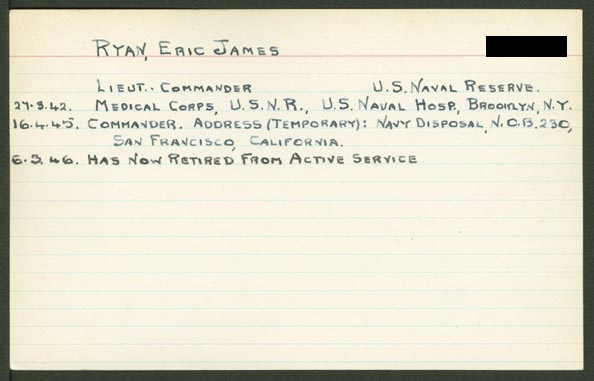 RYAN, ERIC JAMES
LIEUT. COMMANDER U.S. NAVAL RESERVE.
27.3.42. MEDICAL CORPS, U.S.N.R., U.S. NAVAL HOSP., BROOKLYN, N.Y.
16.4.45. COMMANDER. ADDRESS (TEMPORARY): NAVY DISPOSAL, N.O.B. 230,
SAN FRANCISCO, CALIFORNIA.
6.3.46. HAS NOW RETIRED FROM ACTIVE SERVICE